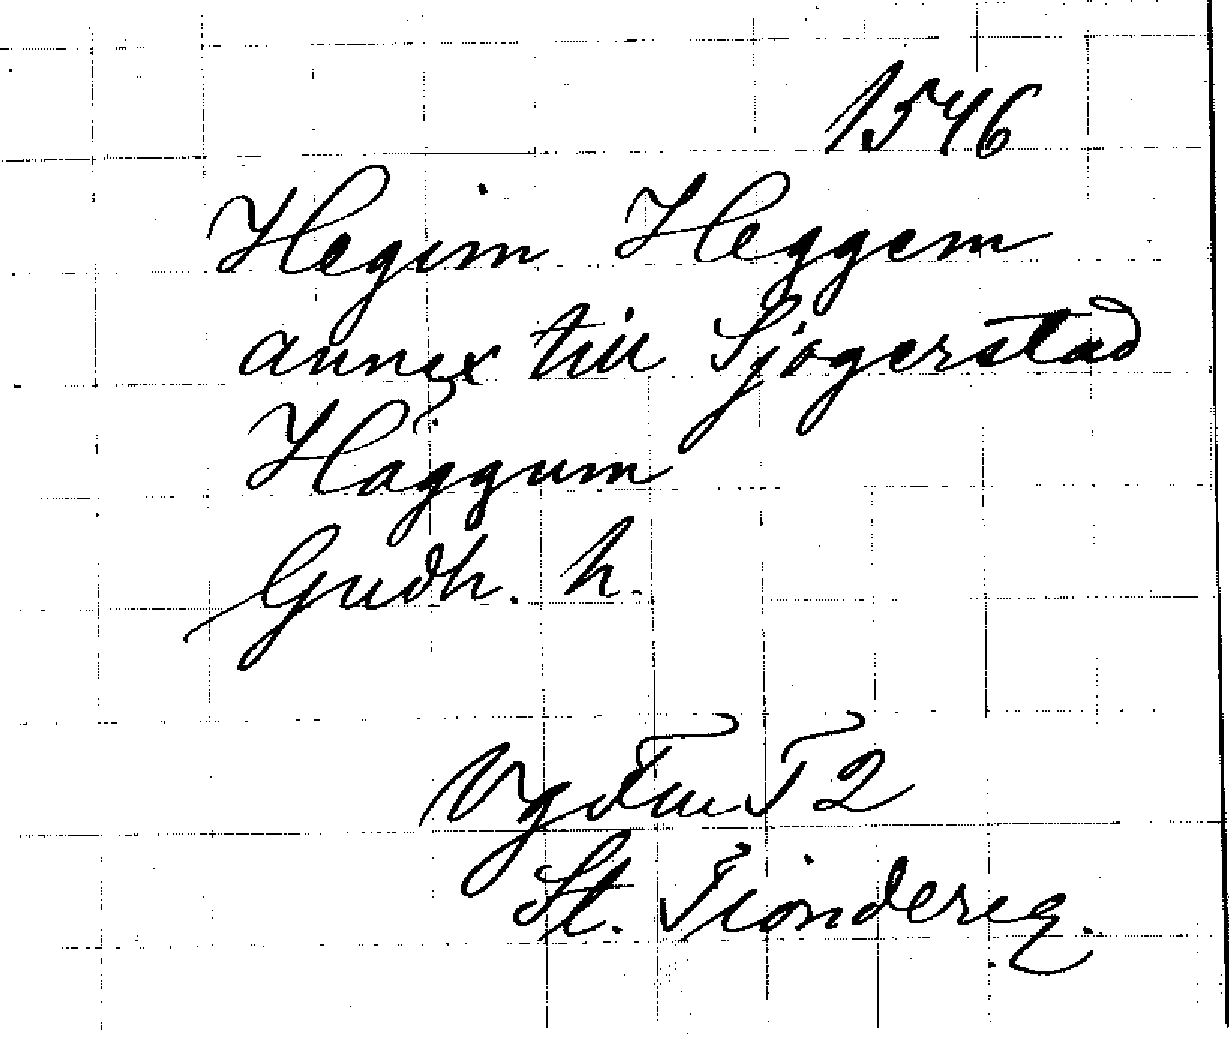 1546
Hegim Heggem
annex till Sjögerstad
Häggum
Gudh. h.
Vg Tu T 2
St. Tiondereg.